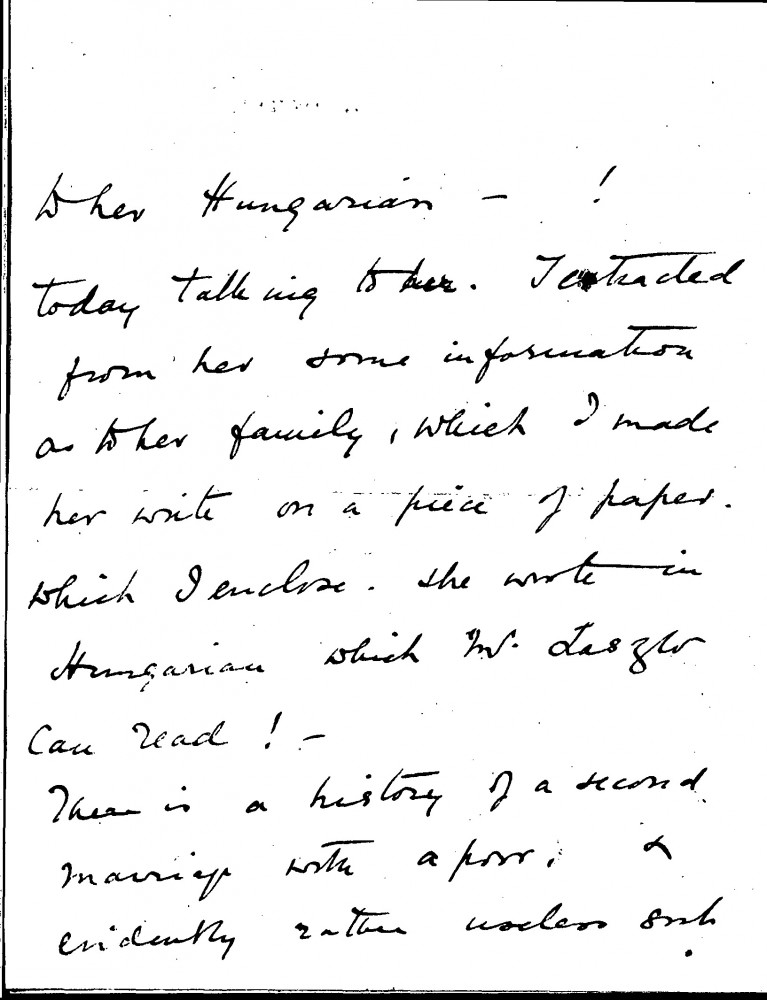 to her Hungarian — !
today talking to her. I extracted
from her some information
as to her family, which I made
her write on a piece of paper.
which I enclose. she wrote in
Hungarian which Mr. Laszlo
can read ! —
There is a history of a second
marriage with a poor, &
evidently rather useless